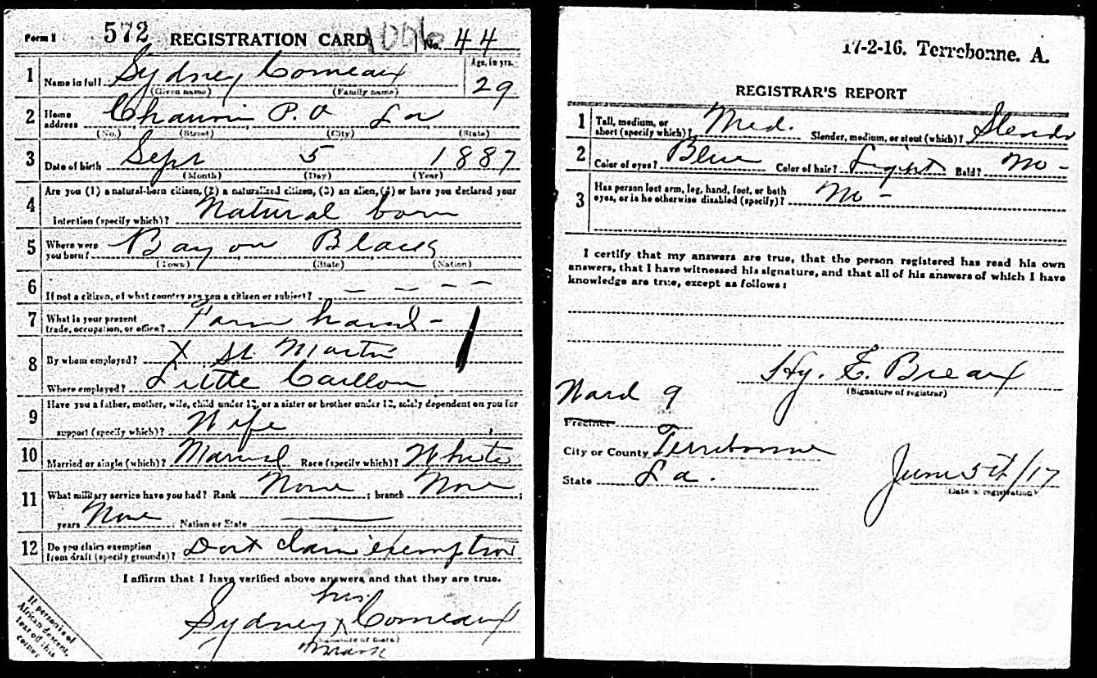 Form 1 572 REGISTRATION CARD 1006 No. 44
1 Name in full Sydney Comeaux Age, in yrs. 29
(Given name) (Family name)
2 Home address Chauvin P.O La
(No.) (Street) (City) (State)
3 Date of birth Sept 5 1887
(Month) (Day) (Year)
4 Are you (1) a natural-born citizen, (2) a naturalized citizen, (3) an alien, (4) or have you declared your
intention (specify which)? Natural born
5 Where were you born? Bayou Black
(Town) (State) (Nation)
6 If not a citizen, of what country are you a citizen or subject? — — — —
7 What is your present trade, occupation, or office? Farm hand -
8 By whom employed? X St Martin
Where employed? Little Caillou
9 Have you a father, mother, wife, child under 12, or a sister or brother under 12, solely dependent on you for
support (specify which)? Wife
10 Married or single (which)? Married Race (specify which)? White
11 What military service have you had? Rank None ; branch None ;
years None Nation or State
12 Do you claim exemption from draft (specify grounds)? Dont claim exemption
I affirm that I have verified above answers and that they are true.
his
Sydney X Comeaux
(Signature or mark)
mark
If person is of
African descent,
tear off this
corner
17-2-16. Terrebonne. A.
REGISTRAR'S REPORT
1 Tall, medium, or short (specify which)? Med. Slender, medium, or stout (which)? Slender
2 Color of eyes? Blue Color of hair? Light Bald? No -
3 Has person lost arm, leg, hand, foot, or both eyes, or is he otherwise disabled (specify)? No -
I certify that my answers are true, that the person registered has read his own
answers, that I have witnessed his signature, and that all of his answers of which I have
knowledge are true, except as follows:
Hy. E. Breaux
(Signature of registrar)
Ward 9
Precinct
City or County Terrebonne
State La.
June 5th/17
(Date of registration)